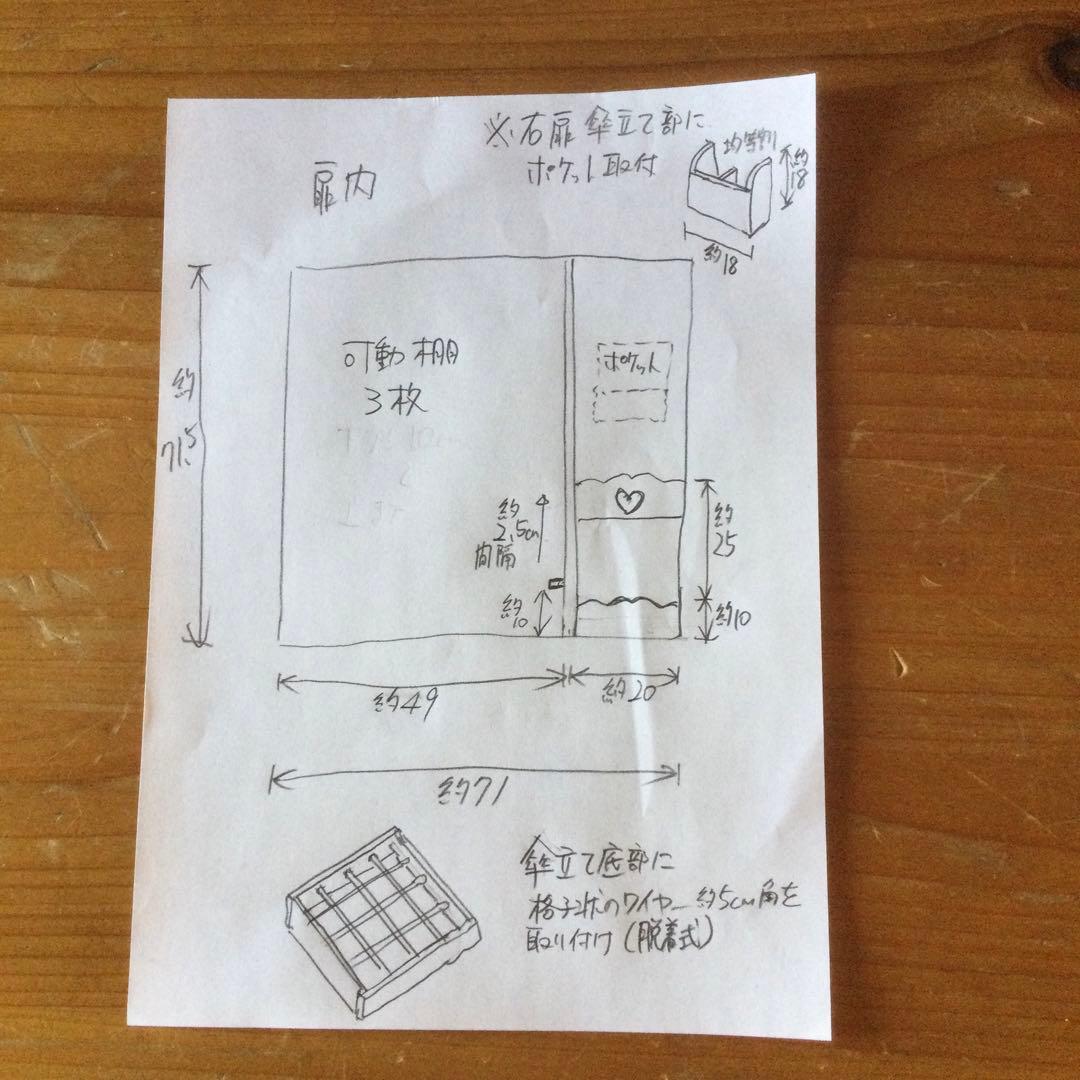 ※右扉 傘立て部に
ポケット取付
均等割
約18
約18
扉内
可動棚
3枚
ポケット
約71.5
約2.5cm間隔
約10
約25
約10
約49
約20
約71
傘立て底部に
格子状のワイヤー 約5cm角を
取り付け(脱着式)